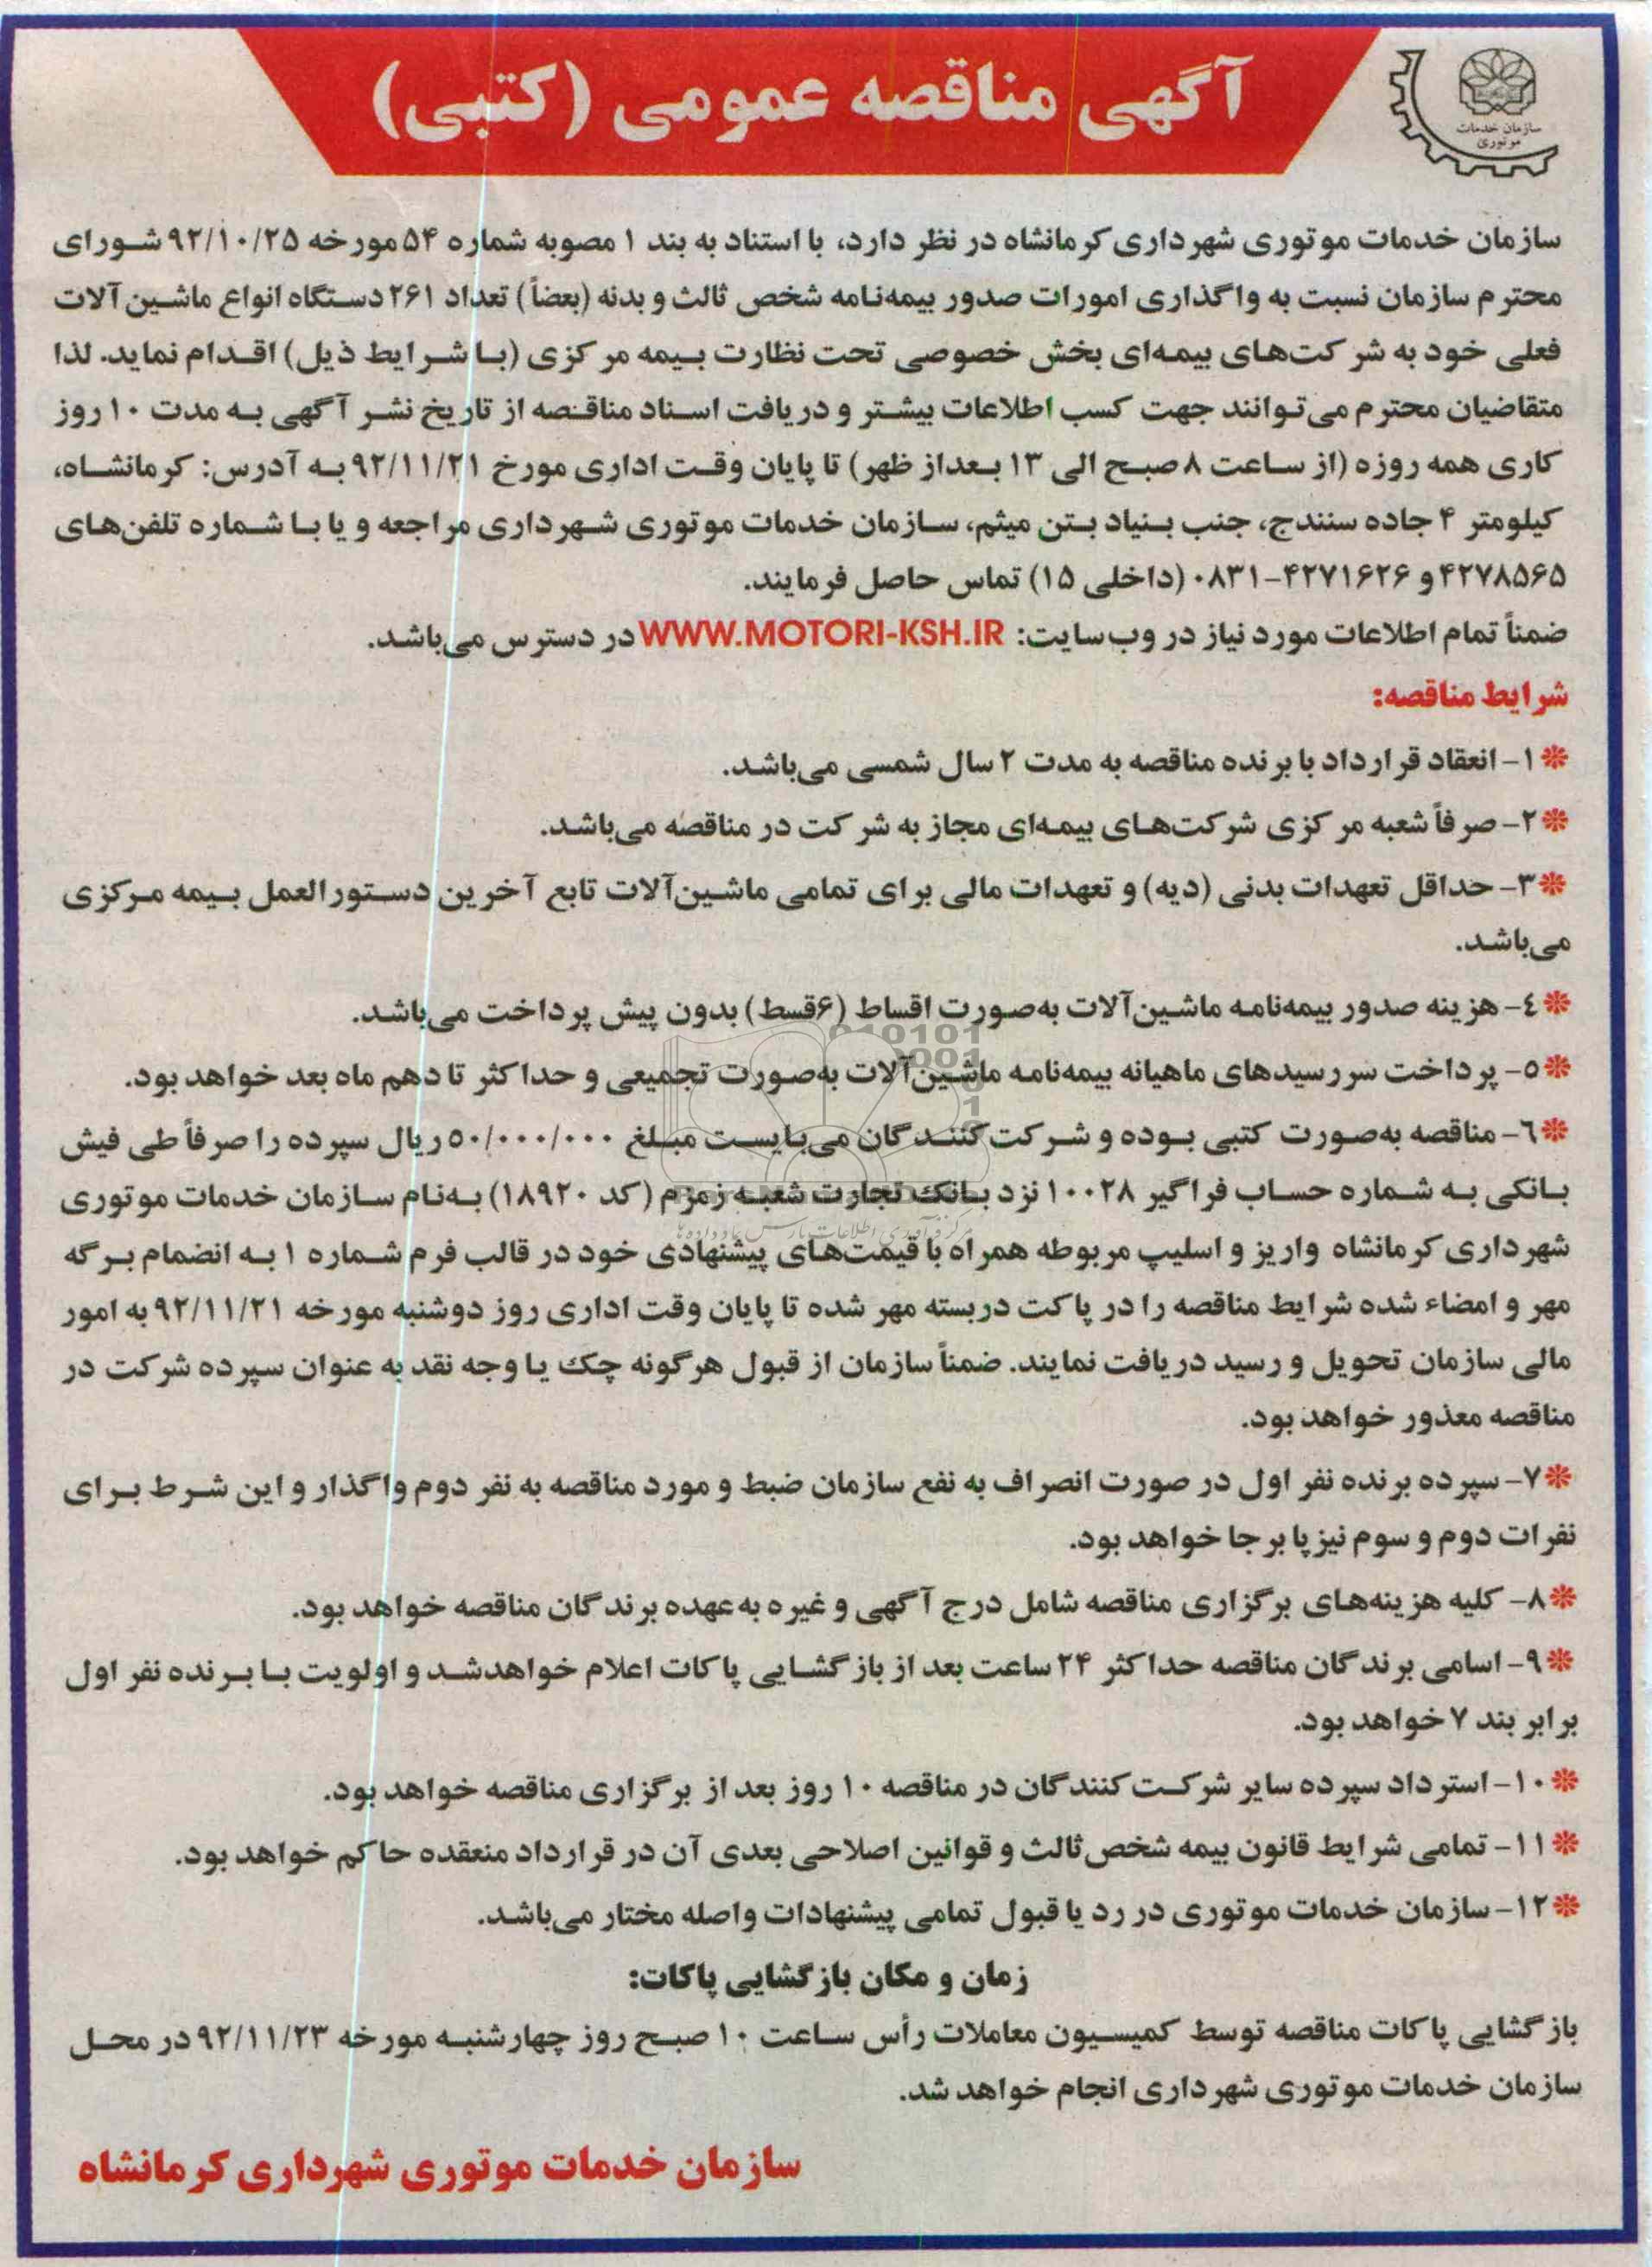 آگهی مناقصه عمومی (کتبی)
سازمان خدمات
موتوری
سازمان خدمات موتوری شهرداری کرمانشاه در نظر دارد، با استناد به بند ۱ مصوبه شماره ۵۴ مورخه ۹۲/۱۰/۲۵ شورای
محترم سازمان نسبت به واگذاری امورات صدور بیمه‌نامه شخص ثالث و بدنه (بعضاً) تعداد ۲۶۱ دستگاه انواع ماشین آلات
فعلی خود به شرکت‌های بیمه‌ای بخش خصوصی تحت نظارت بیمه مرکزی (با شرایط ذیل) اقدام نماید. لذا
متقاضیان محترم می‌توانند جهت کسب اطلاعات بیشتر و دریافت اسناد مناقصه از تاریخ نشر آگهی به مدت ۱۰ روز
کاری همه روزه (از ساعت ۸ صبح الی ۱۳ بعداز ظهر) تا پایان وقت اداری مورخ ۹۲/۱۱/۲۱ به آدرس: کرمانشاه،
کیلومتر ۴ جاده سنندج، جنب بنیاد بتن میثم، سازمان خدمات موتوری شهرداری مراجعه و یا با شماره تلفن‌های
۴۲۷۸۵۶۵ و ۴۲۷۱۶۲۶-۰۸۳۱ (داخلی ۱۵) تماس حاصل فرمایند.
ضمناً تمام اطلاعات مورد نیاز در وب‌سایت: WWW.MOTORI-KSH.IR در دسترس می‌باشد.
شرایط مناقصه:
❊۱- انعقاد قرارداد با برنده مناقصه به مدت ۲ سال شمسی می‌باشد.
❊۲- صرفاً شعبه مرکزی شرکت‌های بیمه‌ای مجاز به شرکت در مناقصه می‌باشد.
❊۳- حداقل تعهدات بدنی (دیه) و تعهدات مالی برای تمامی ماشین‌آلات تابع آخرین دستورالعمل بیمه مرکزی
می‌باشد.
❊٤- هزینه صدور بیمه‌نامه ماشین‌آلات به‌صورت اقساط (۶قسط) بدون پیش پرداخت می‌باشد.
❊۵- پرداخت سررسیدهای ماهیانه بیمه‌نامه ماشین‌آلات به‌صورت تجمیعی و حداکثر تا دهم ماه بعد خواهد بود.
❊٦- مناقصه به‌صورت کتبی بوده و شرکت‌کنندگان می‌بایست مبلغ ۵۰/۰۰۰/۰۰۰ ریال سپرده را صرفاً طی فیش
بانکی به شماره حساب فراگیر ۱۰۰۲۸ نزد بانک تجارت شعبه زمزم (کد ۱۸۹۲۰) به‌نام سازمان خدمات موتوری
شهرداری کرمانشاه واریز و اسلیپ مربوطه همراه با قیمت‌های پیشنهادی خود در قالب فرم شماره ۱ به انضمام برگه
مهر و امضاء شده شرایط مناقصه را در پاکت دربسته مهر شده تا پایان وقت اداری روز دوشنبه مورخه ۹۲/۱۱/۲۱ به امور
مالی سازمان تحویل و رسید دریافت نمایند. ضمناً سازمان از قبول هرگونه چک یا وجه نقد به عنوان سپرده شرکت در
مناقصه معذور خواهد بود.
❊۷- سپرده برنده نفر اول در صورت انصراف به نفع سازمان ضبط و مورد مناقصه به نفر دوم واگذار و این شرط برای
نفرات دوم و سوم نیز پا بر جا خواهد بود.
❊۸- کلیه هزینه‌های برگزاری مناقصه شامل درج آگهی و غیره به عهده برندگان مناقصه خواهد بود.
❊۹- اسامی برندگان مناقصه حداکثر ۲۴ ساعت بعد از بازگشایی پاکات اعلام خواهدشد و اولویت با برنده نفر اول
برابر بند ۷ خواهد بود.
❊۱۰- استرداد سپرده سایر شرکت‌کنندگان در مناقصه ۱۰ روز بعد از برگزاری مناقصه خواهد بود.
❊۱۱- تمامی شرایط قانون بیمه شخص ثالث و قوانین اصلاحی بعدی آن در قرارداد منعقده حاکم خواهد بود.
❊۱۲- سازمان خدمات موتوری در رد یا قبول تمامی پیشنهادات واصله مختار می‌باشد.
زمان و مکان بازگشایی پاکات:
بازگشایی پاکات مناقصه توسط کمیسیون معاملات رأس ساعت ۱۰ صبح روز چهارشنبه مورخه ۹۲/۱۱/۲۳ در محل
سازمان خدمات موتوری شهرداری انجام خواهد شد.
سازمان خدمات موتوری شهرداری کرمانشاه